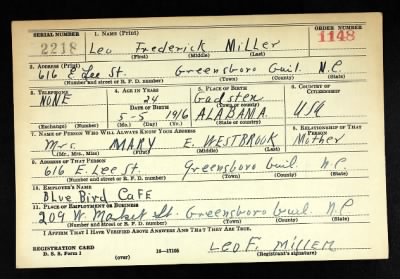 SERIAL NUMBER 1. NAME (Print) ORDER NUMBER
2218 Leo Frederick Miller 1148
(First) (Middle) (Last)
2. ADDRESS (Print)
616 E. Lee St. Greensboro Guil. N.C.
(Number and street or R. F. D. number) (Town) (County) (State)
3. TELEPHONE 4. AGE IN YEARS 5. PLACE OF BIRTH 6. COUNTRY OF CITIZENSHIP
NONE 24 Gadsten
DATE OF BIRTH (Town or county)
5-5 1916 ALABAMA USA
(Exchange) (Number) (Mo.) (Day) (Yr.) (State or country)
7. NAME OF PERSON WHO WILL ALWAYS KNOW YOUR ADDRESS 8. RELATIONSHIP OF THAT PERSON
Mrs. MARY E. WESTBROOK Mother
(Mr., Mrs., Miss) (First) (Middle) (Last)
9. ADDRESS OF THAT PERSON
616 E. Lee St. Greensboro Guil. N.C.
(Number and street or R. F. D. number) (Town) (County) (State)
10. EMPLOYER'S NAME
BLue Bird CaFE
11. PLACE OF EMPLOYMENT OR BUSINESS
209 W. Market St. Greensboro Guil. N.C.
(Number and street or R. F. D. number) (Town) (County) (State)
I AFFIRM THAT I HAVE VERIFIED ABOVE ANSWERS AND THAT THEY ARE TRUE.
REGISTRATION CARD
D. S. S. Form 1 (over) 16—17105 Leo F. Miller
(Registrant's signature)